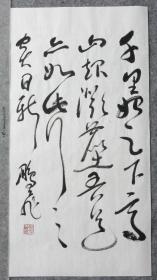 千里始足下高
山起微塵吾道
亦如此行之
貴日新 鵬飛